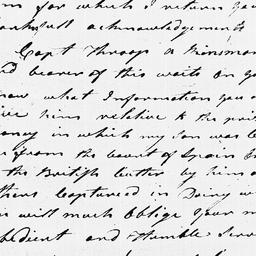 for which I return you
thankfull acknowledgements
Capt Throop a Kinsman
bearer of this waits on yo
now what Information you
give him relative to the pri
oney in which my son was
from the Court of Spain
the British Cutter by him
thers Captured in Doing
is will much Oblige your m
bedient and Humble Serv